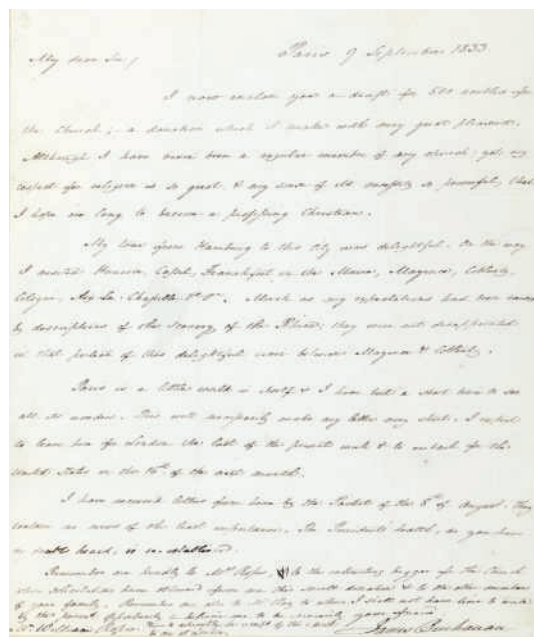 Paris 9 September 1833.
My dear Sir,
I now enclose you a draft for 500 roubles for
the Church; - a donation which I make with very great pleasure.
Although I have never been a regular member of any church; yet my
respect for religion is so great, & my sense of its so powerful, that
I hope ere long to become a professing Christian.
My tour from Hamburg to this city was delightful. On the way
I visited Hanover, Cassel, Frankfort on the Maine, Mayence, Coblentz,
Cologne, Aix La Chapelle &c &c. Much as my expectations had been raised
by descriptions of the scenery of the Rhine; they were not disappointed
in that portion of this delightful river between Mayence & Coblentz.
Paris is a little world in itself & I have but a short time to see
all its wonders. This will necessarily make my letter very short. I expect
to leave here for London the last of the present week & to embark for the
United States on the of the next month.
I have received letters from home by the Packet of the 8th of August. They
contain no news of the least importance. The President's health, as you have
no doubt heard, is
Remember me kindly to Mrs Ropes, to the of the Church
whose have from me this small donation & to the other members
of your family. Remember me also to Mr to whom I have not time to write
by the present opportunity & believe me to be sincerely your friend
James Buchanan
William Ropes